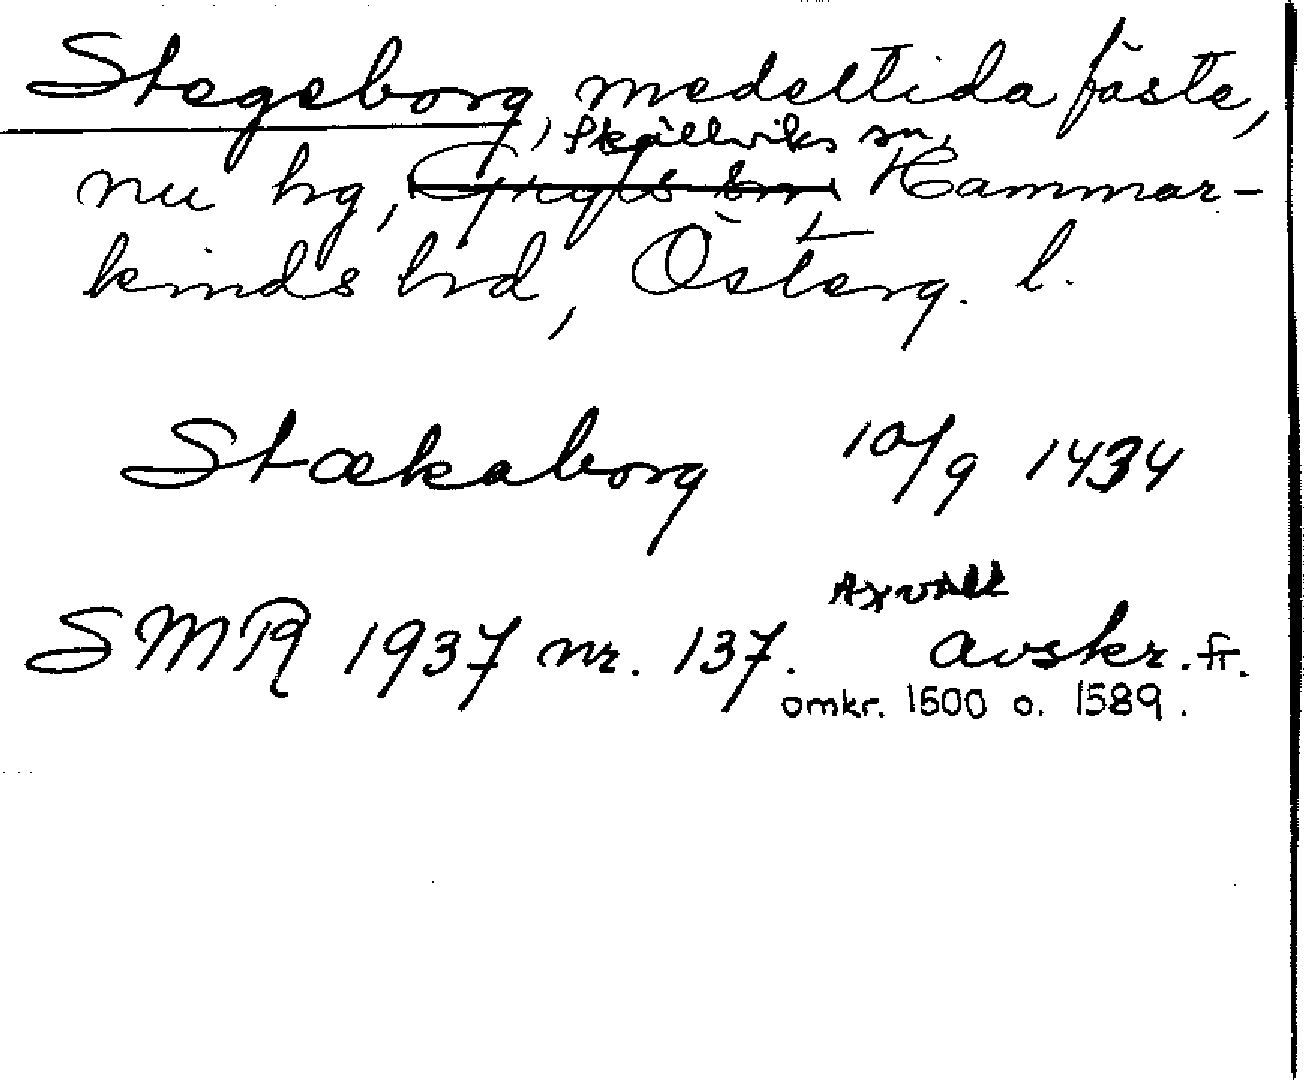 Stegeborg, medeltida fäste,
Skällviks sn,
nu hg, Gryts sn, Hammar-
kinds hd, Österg. l.
Stækaborg 10/9 1434
Axvall
SMR 1937 nr. 137. avskr. fr.
omkr. 1500 o. 1589.